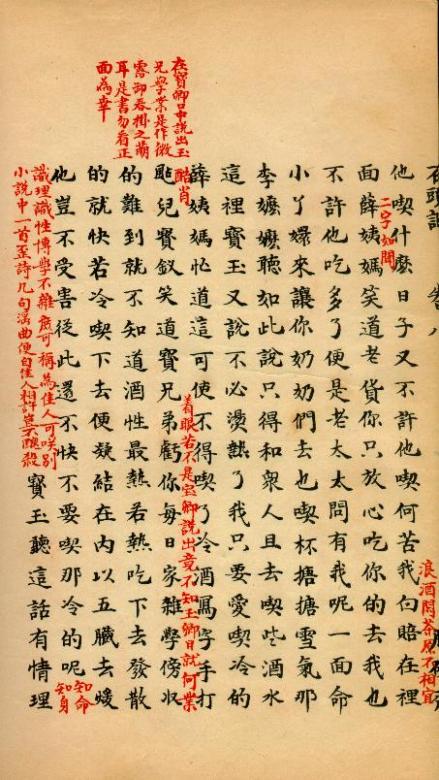 石頭記 卷八
他喫什麽日子又不許他喫何苦我白賠在裡
浪酒閒茶原不相宜
面薛姨媽笑道老貨你只放心吃你的去我也
二字如聞
不許他吃多了便是老太太問有我呢一面命
小丫嬛來讓你奶奶們去也喫杯搪搪雪氣那
李嬤嬤聽如此說只得和衆人且去喫些酒水
這裡寶玉又說不必燙熱了我只要愛喫冷的
薛姨媽忙道這可使不得喫了冷酒寫字手打
酷肖
颭兒寶釵笑道寶兄弟虧你每日家雜學傍収
在寶卿口中說出玉
兄學業是作微
露卸春掛之萌
耳是書勿看正
面為幸
着眼若不是寶卿說出竟不知玉卿日就何業
的難到就不知道酒性最熱若熱吃下去發散
的就快若冷喫下去便凝結在內以五臟去煖
他豈不受害從此還不快不要喫那冷的呢
知命
知身
識理識性博學不雜庶可稱為佳人可笑別
小說中一首歪詩几句淫曲便自佳人相許豈不醜殺
寶玉聽這話有情理